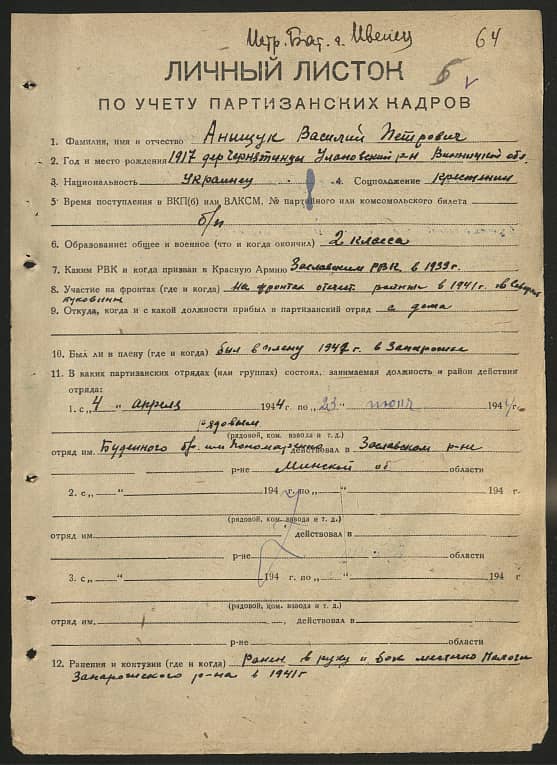 Истр. Бат. г. Ивенец 64
ЛИЧНЫЙ ЛИСТОК
ПО УЧЕТУ ПАРТИЗАНСКИХ КАДРОВ
1. Фамилия, имя и отчество Анищук Василий Петрович
2. Год и место рождения 1917 дер Улановский р-н обл.
3. Национальность Украинец 4. Соцположение Крестянин
5. Время поступления в ВКП(б) или ВЛКСМ, № партийного или комсомольского билета
б/п
6. Образование: общее и военное (что и когда окончил) 2 класса
7. Каким РВК и когда призван в Красную Армию Заславским РВК в 1939 г.
8. Участие на фронтах (где и когда) на фронтах отечест. в 1941 г.
9. Откуда, когда и с какой должности прибыл в партизанский отряд с дома
10. Был ли в плену (где и когда) был в плену в
11. В каких партизанских отрядах (или группах) состоял, занимаемая должность и район действия
отряда:
1. с „4 “ апреля 1944 г. по „23 “ 194 г.
рядовым
(рядовой, ком. взвода и т. д.)
отряд им. Буденного бр. им Пономаренко действовал в Заславском р-не
р-не Минской об области
2. с „ “ 194 г. по „ “ 194 г.
(рядовой, ком. взвода и т. д.)
отряд им. действовал в
р-не области
3. с „ “ 194 г. по „ “ 194 г.
(рядовой, ком. взвода и т. д.)
отряд им. , действовал в
р-не области
12. Ранения и контузии (где и когда) Ранен в руку и бок местечко
р-на в 1941 г